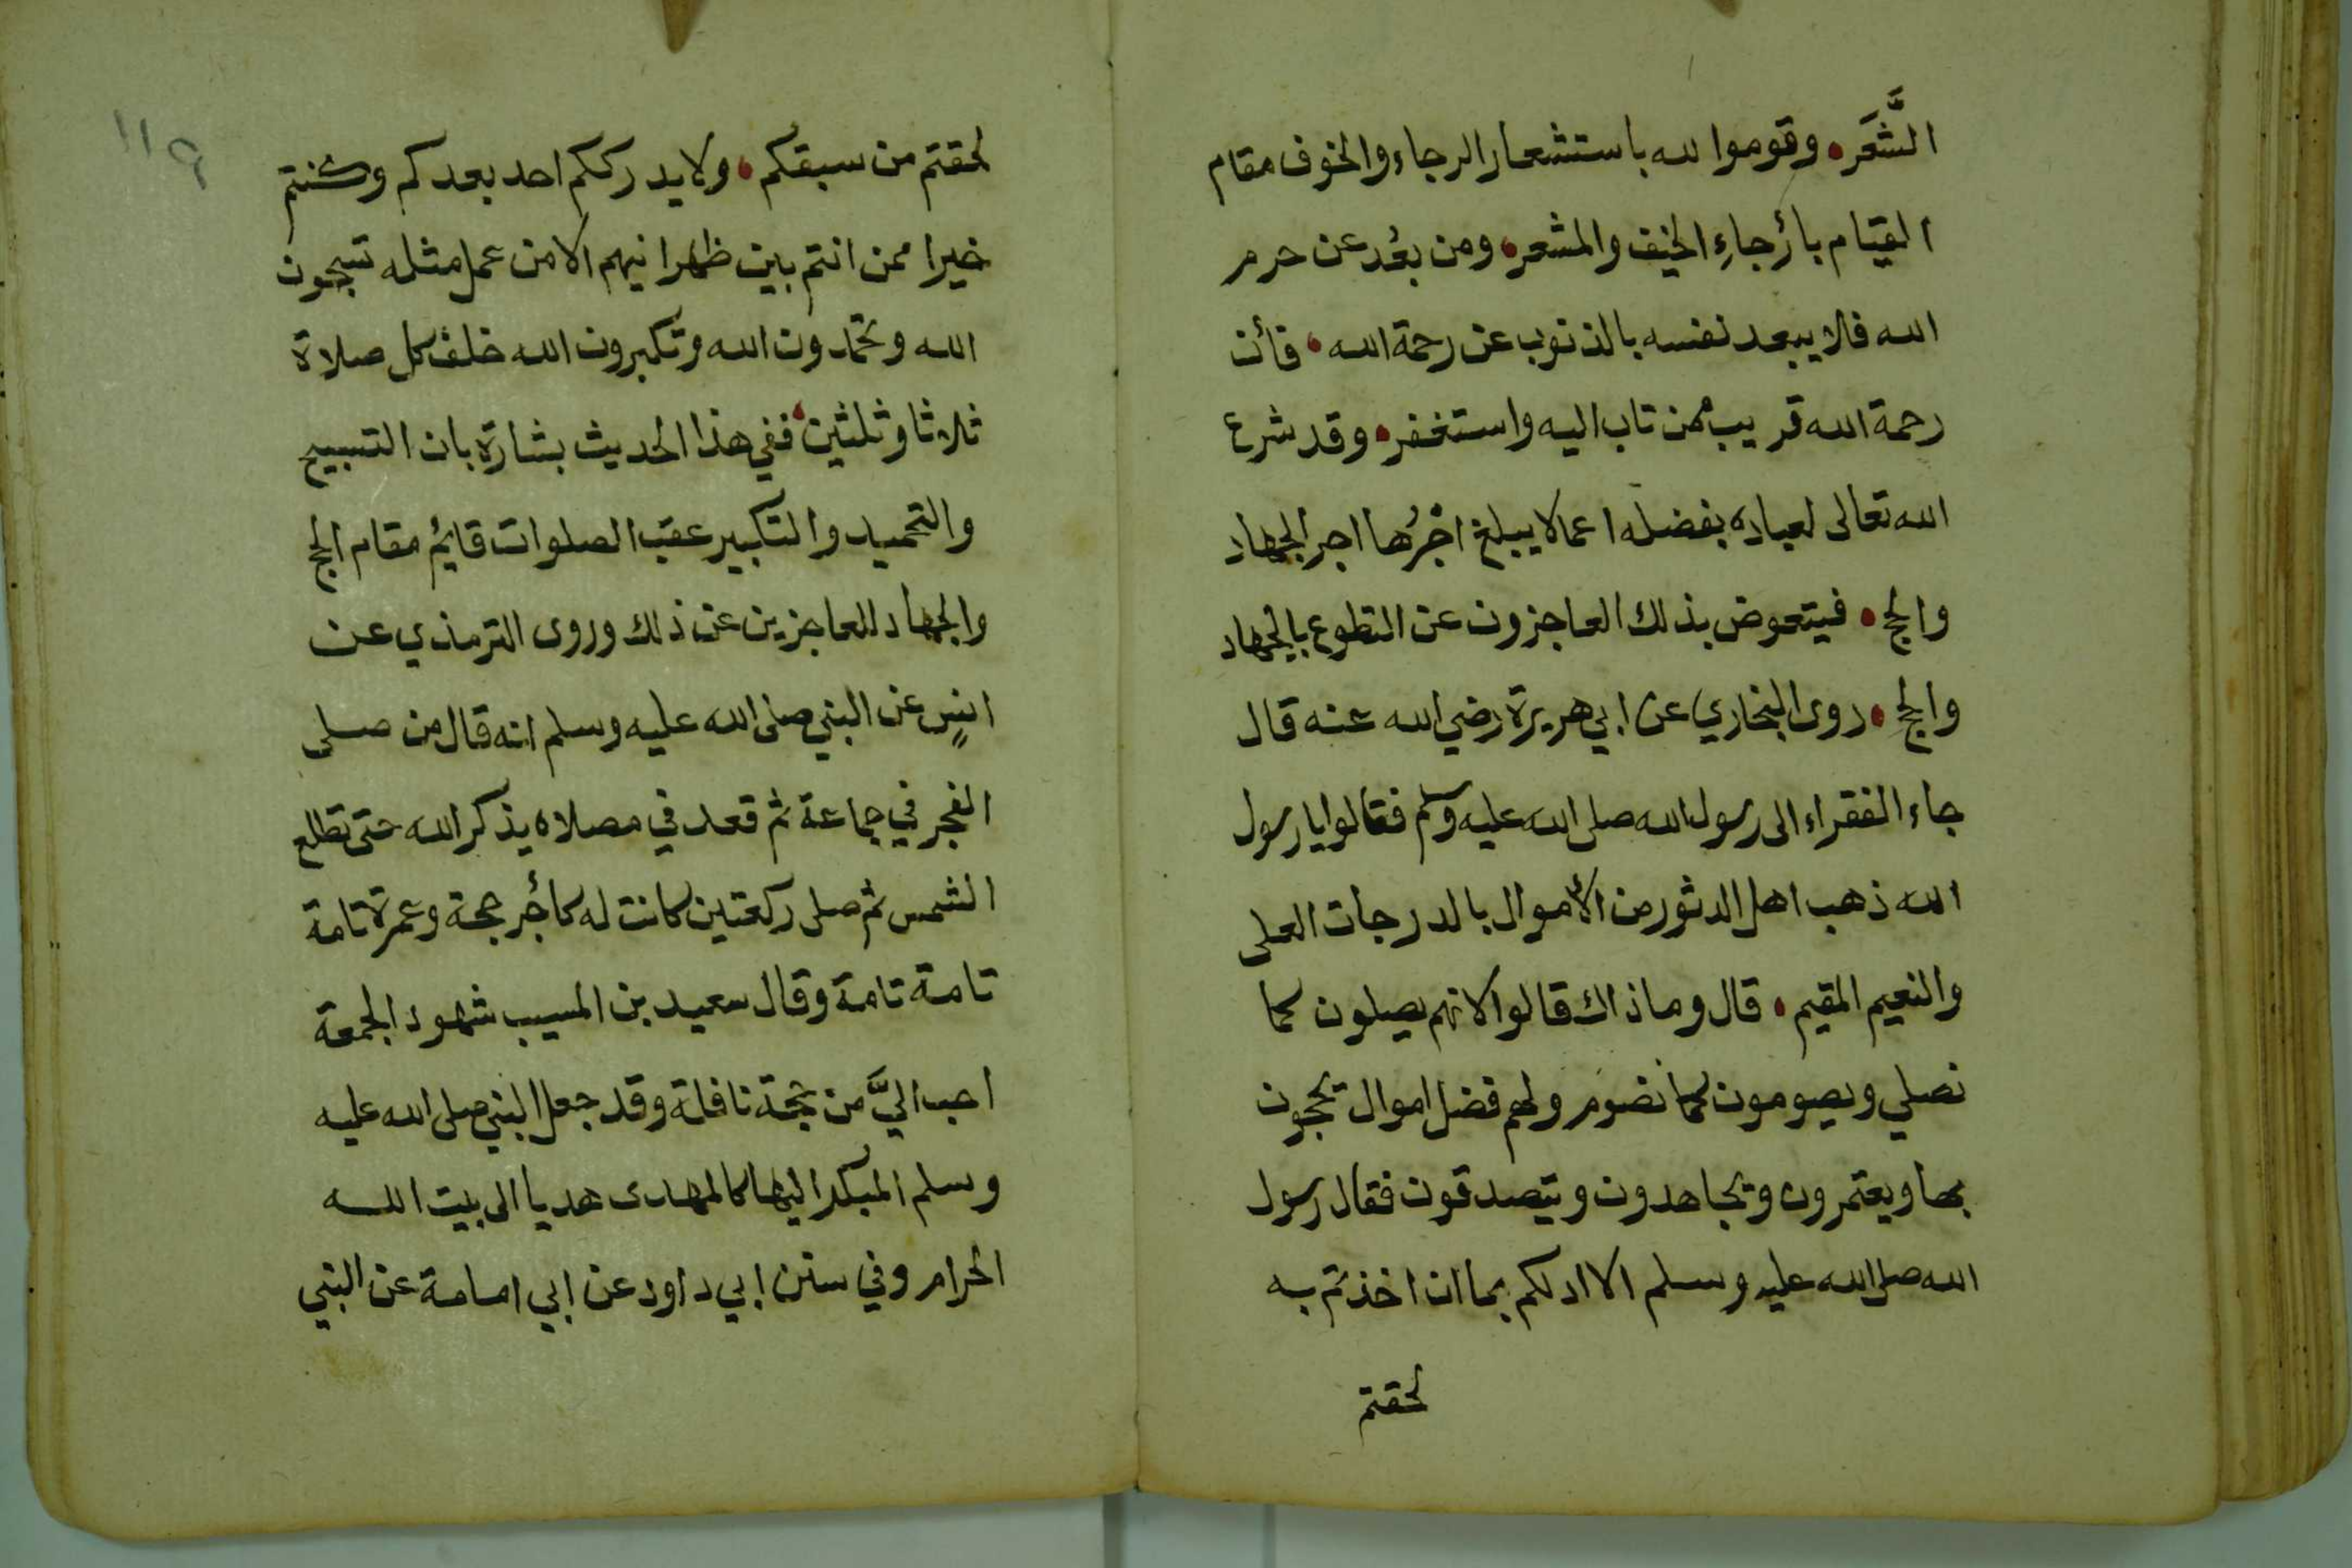 الشَّعَر• وقوموا لله باستشعار الرجاء والخوف مقام
القيام بأرجاءِ الخيف والمشعر• ومن بعُد عن حرم
الله فلا يبعد نفسه بالذنوب عن رحمة الله• فأن
رحمة الله قريب ممن تاب اليه واستغفر• وقد شرع
الله تعالى لعباده بفضله اعمالا يبلغ اجْرُها اجر الجهاد
والحج• فيتعوض بذلك العاجزون عن التطوع بالجهاد
والحج• روى البخاري عن ابي هريرة رضي الله عنه قال
جاء الفقراء الى رسول الله صلى الله عليه وسلم فقالوا يا رسول
الله ذهب اهل الدثور من الأموال بالدرجات العلى
والنعيم المقيم• قال وما ذاك قالوا لانهم يصلون كما
نصلي ويصومون كما نصوم ولهم فضل اموال يحجون
بها ويعتمرون ويجاهدون ويتصدقون فقال رسول
الله صلى الله عليه وسلم الا ادلكم بما ان اخذتم به
لحقتم
١١٩
لحقتم من سبقكم• ولا يدرككم احد بعدكم وكنتم
خيرا ممن انتم بين ظهرانيهم الا من عمل مثله تسبحون
الله وتحمدون الله وتكبرون الله خلف كل صلاة
ثلاثا وثلثين• ففي هذا الحديث بشارة بان التسبيح
والتحميد والتكبير عقب الصلوات قائم مقام الحج
والجهاد للعاجزين عن ذلك وروى الترمذي عن
انسٍ عن النبي صلى الله عليه وسلم انه قال من صلى
الفجر في جماعة ثم قعد في مصلاه يذكر الله حتى تطلع
الشمس ثم صلى ركعتين كانت له كأجر حجة وعمرة تامة
تامة تامة وقال سعيد بن المسيب شهود الجمعة
احب اليَّ من حجة نافلة وقد جعل النبي صلى الله عليه
وسلم المبكر اليها كالمهدى هديا الى بيت الله
الحرام وفي سنن ابي داود عن ابي امامة عن النبي